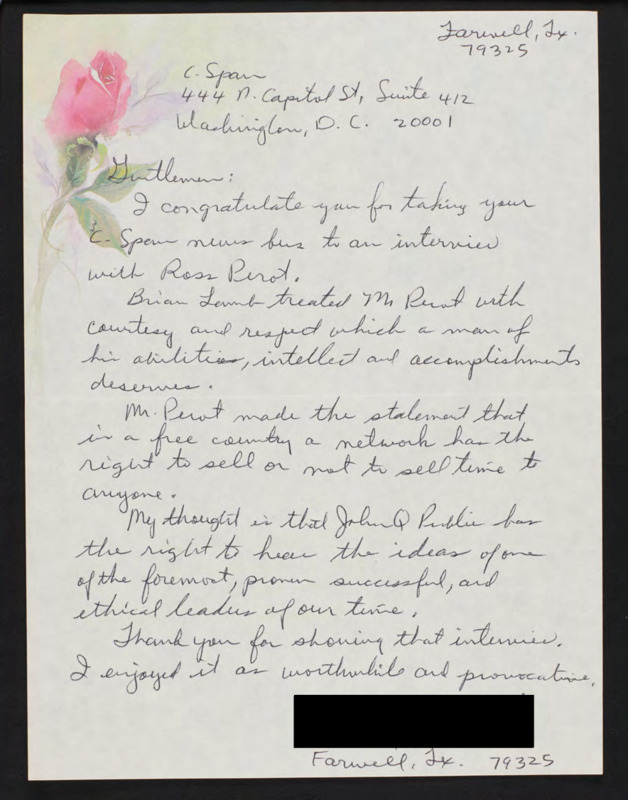 Farwell, Tx.
79325
C. Span
444 N. Capitol St, Suite 412
Washington, D. C. 20001
Gentlemen:
I congratulate you for taking your
C. Span news bus to an interview
with Ross Perot.
Brian Lamb treated Mr Perot with
courtesy and respect which a man of
his abilities, intellect and accomplishments
deserves.
Mr. Perot made the statement that
in a free country a network has the
right to sell or not to sell time to
anyone.
My thought is that John Q Public has
the right to hear the ideas of one
of the foremost, proven successful, and
ethical leaders of our time.
Thank you for showing that interview.
I enjoyed it as worthwhile and provocative.
Farwell, Tx. 79325